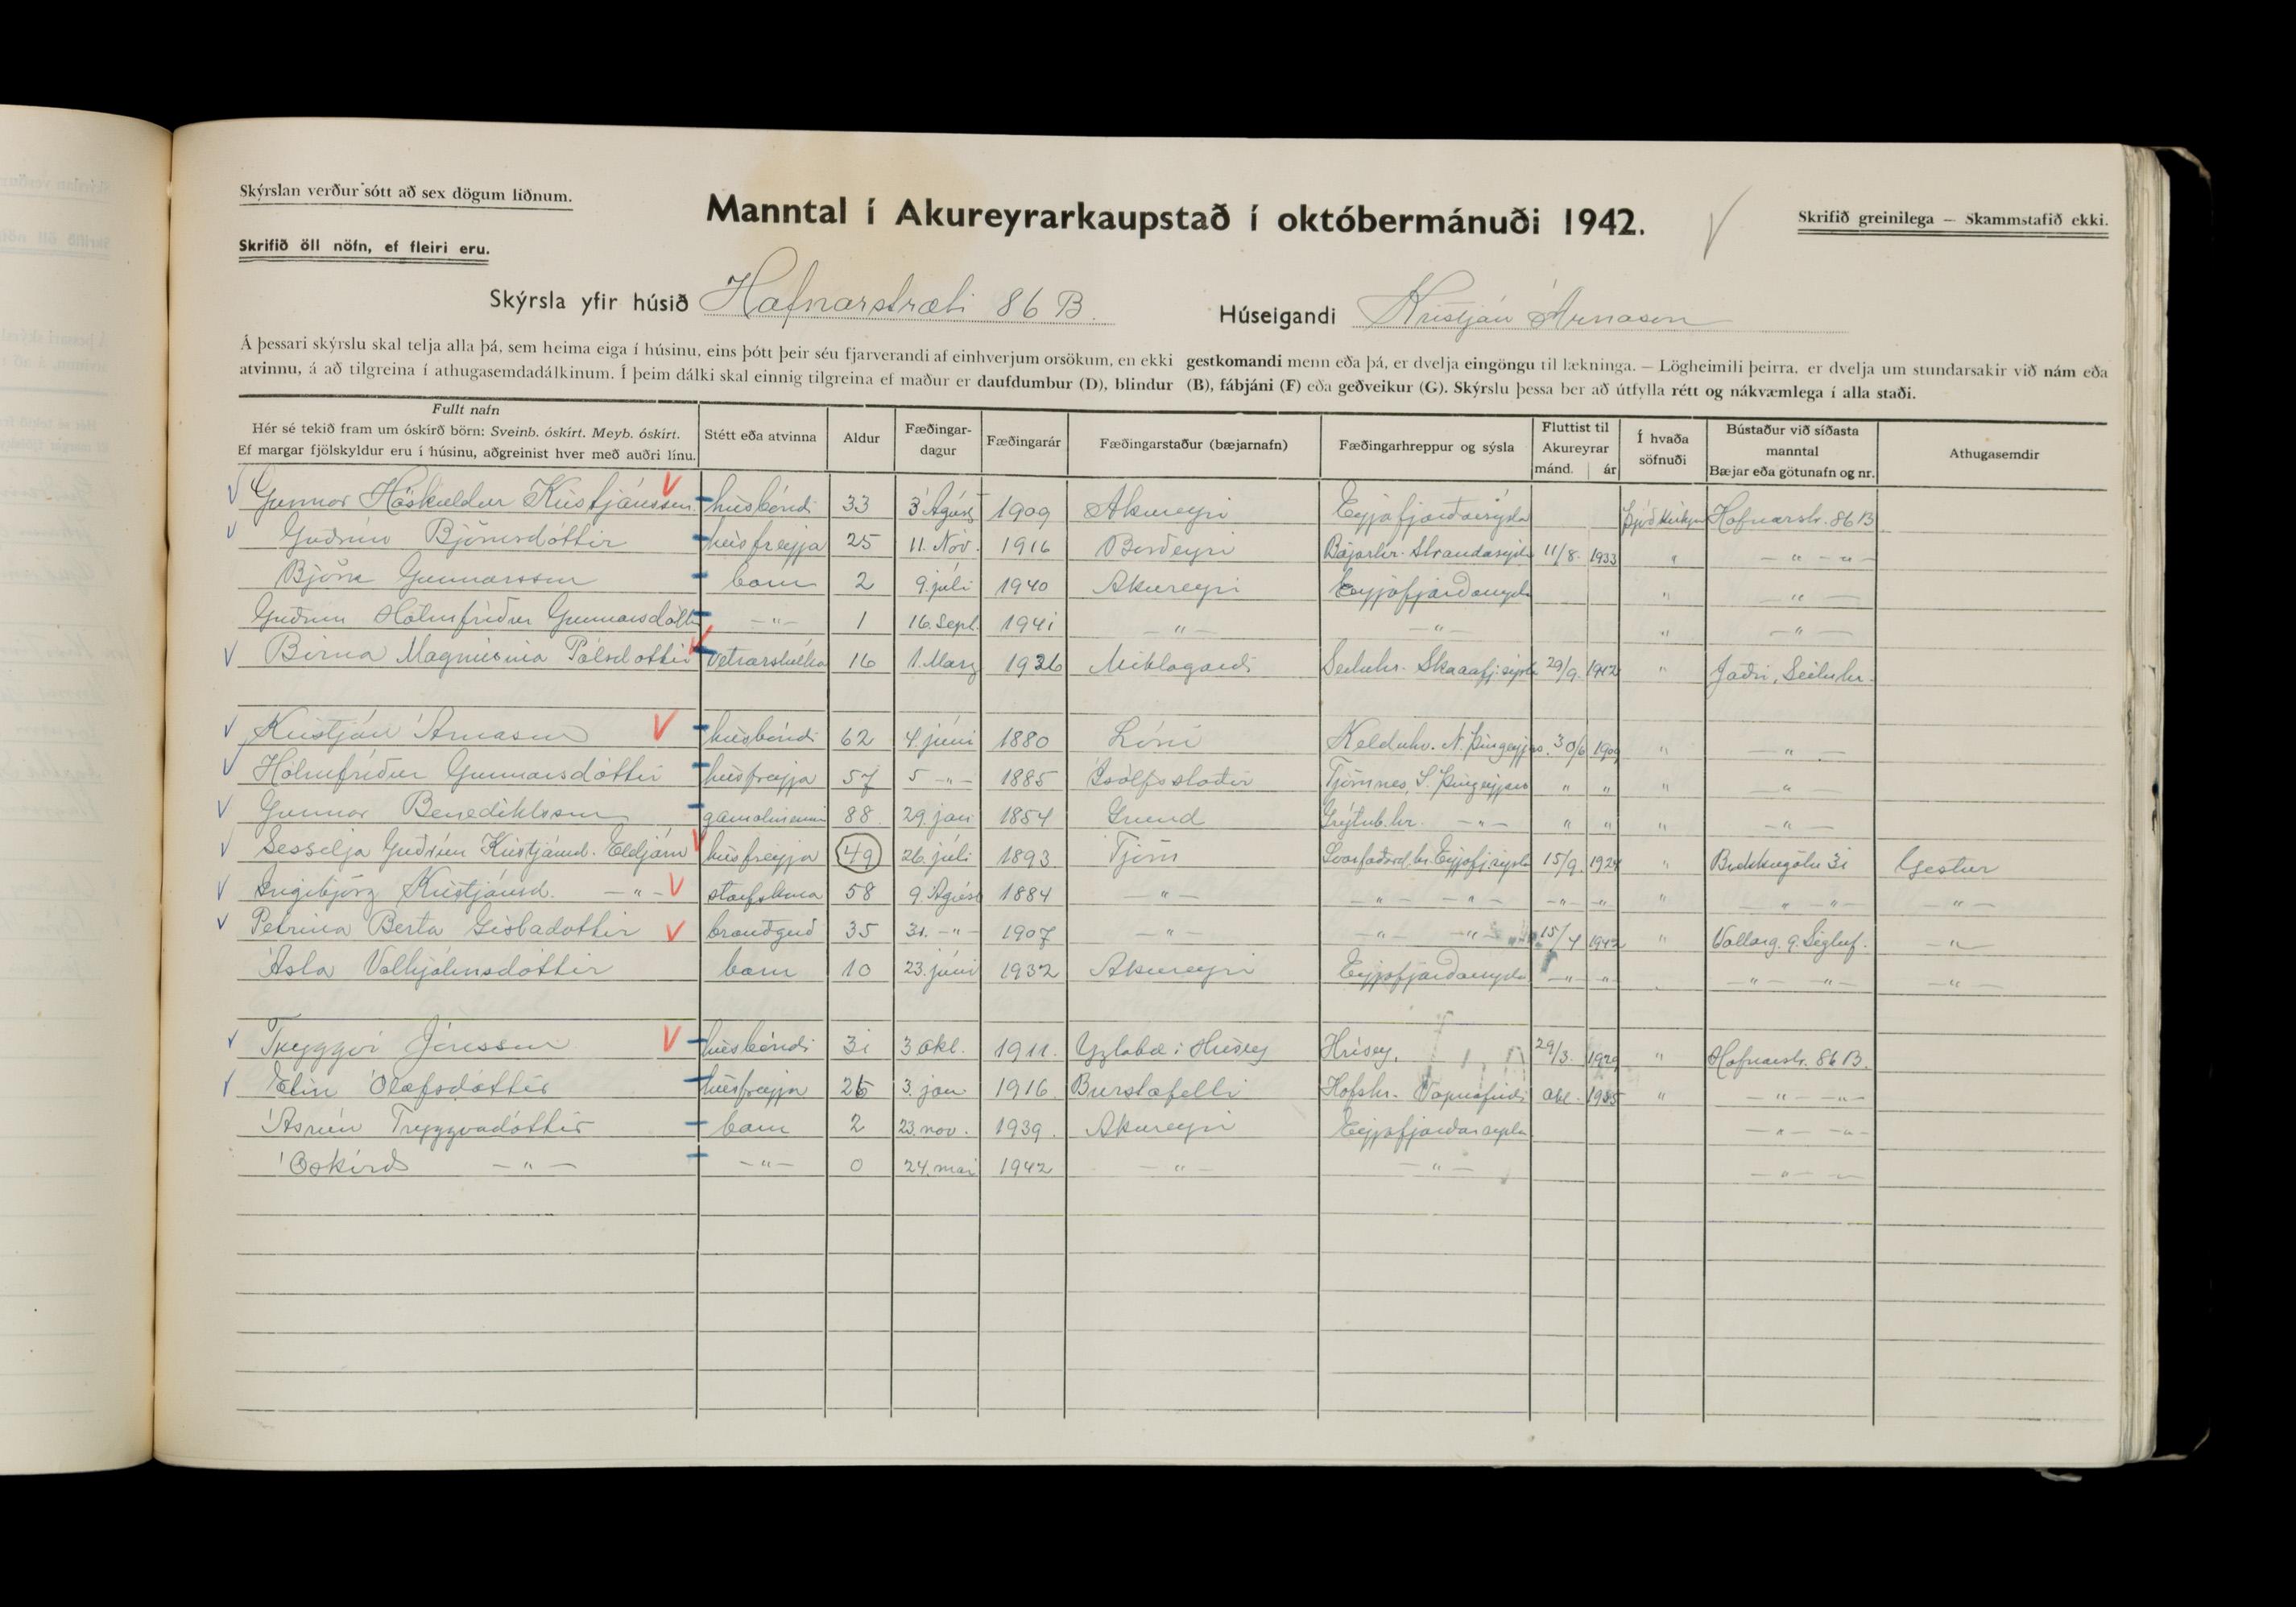 Skýrslan verður sótt að sex dögum liðnum.
Manntal í Akureyrarkaupstað í októbermánuði 1942.
Skrifið greinilega — Skammstafið ekki.
Skrifið öll nöfn, ef fleiri eru.
Skýrsla yfir húsið Hafnarstræti 86 B. Húseigandi Kristján Árnason
Á þessari skýrslu skal telja alla þá, sem heima eiga í húsinu, eins þótt þeir séu fjarverandi af einhverjum orsökum, en ekki gestkomandi menn eða þá, er dvelja eingöngu til lækninga. — Lögheimili þeirra, er dvelja um stundarsakir við nám eða
atvinnu, á að tilgreina í athugasemdadálkinum. Í þeim dálki skal einnig tilgreina ef maður er daufdumbur (D), blindur (B), fábjáni (F) eða geðveikur (G). Skýrslu þessa ber að útfylla rétt og nákvæmlega í alla staði.
Fullt nafn
Hér sé tekið fram um óskírð börn: Sveinb. óskírt. Meyb. óskírt.
Ef margar fjölskyldur eru í húsinu, aðgreinist hver með auðri línu.
Stétt eða atvinna
Aldur
Fæðingar-
dagur
Fæðingarár
Fæðingarstaður (bæjarnafn)
Fæðingarhreppur og sýsla
Fluttist til
Akureyrar
mánd. ár
Í hvaða
söfnuði
Bústaður við síðasta
manntal
Bæjar eða götunafn og nr.
Athugasemdir
Gunnar Höskuldur Kristjánsson húsbóndi 33 3 Ágúst 1909 Akureyri Eyjafjarðarsýsla Þjóðkirkju Hafnarstr. 86 B
Guðrún Björnsdóttir húsfreyja 25 11. Nóv. 1916 Borðeyri Bæjarhr. Strandasýsla 11/8. 1933 " — " — " —
Björn Gunnarsson barn 2 9. júli 1940 Akureyri Eyjafjarðarsýsla " — " —
Guðrún Hólmfríður Gunnarsdóttir — " — 1 16. Sept. 1941 — " — — " — " — " —
Birna Magnúsína Pálsdóttir Vetrarstúlka 16 1. Marz 1926 Miklagarði Seiluhr. Skagafj. sýsla 29/9. 1942 " Jaðri, Seiluhr.
Kristján Árnason húsbóndi 62 4. júní 1880 Lóni Kelduhv. N. Þingeyjars. 30/6 1909 " — " —
Hólmfríður Gunnarsdóttir húsfreyja 57 5 — " — 1885 Ísólfsstaðir Tjörnnes, S. Þingeyjars " " " — " —
Gunnar Benediktsson gamalmenni 88 29. jan 1854 Grund Grýtub.hr. — " — " " " — " —
Sesselja Guðrún Kristjánsd. Eldjárn húsfreyja 49 26. júlí 1893 Tjörn Svarfaðard. hr. Eyjafj.sýsla 15/9. 1924 " Brekkugötu 31 Gestur
Ingibjörg Kristjánsd. — " — 58 9. Ágúst 1884 — " — — " — — " — — " — — " — " — " — " — — " —
Petrína Berta Gísladóttir 35 31. — " — 1907 — " — — " — — " — 15/4 1942 " Vallarg. 9. Sigluf. — " —
Ásla Valhjálmsdóttir barn 10 23. júní 1932 Akureyri Eyjafjarðarsýsla — " — — " — — " — — " — — " —
Tryggvi Jónsson húsbóndi 31 3 okt. 1911. Yztabæ í Hrísey Hrísey. 29/3. 1929 " Hafnarstr. 86 B.
Elín Ólafsdóttir húsfreyja 26 3. jan 1916 Burstafelli Hofshr. Vopnafirði okt. 1935 " — " — " —
Ásrún Tryggvadóttir barn 2 23. nov. 1939. Akureyri Eyjafjarðarsýsla — " — " —
Óskírð — " — — " — 0 24. mai 1942 — " — — " — — " — —